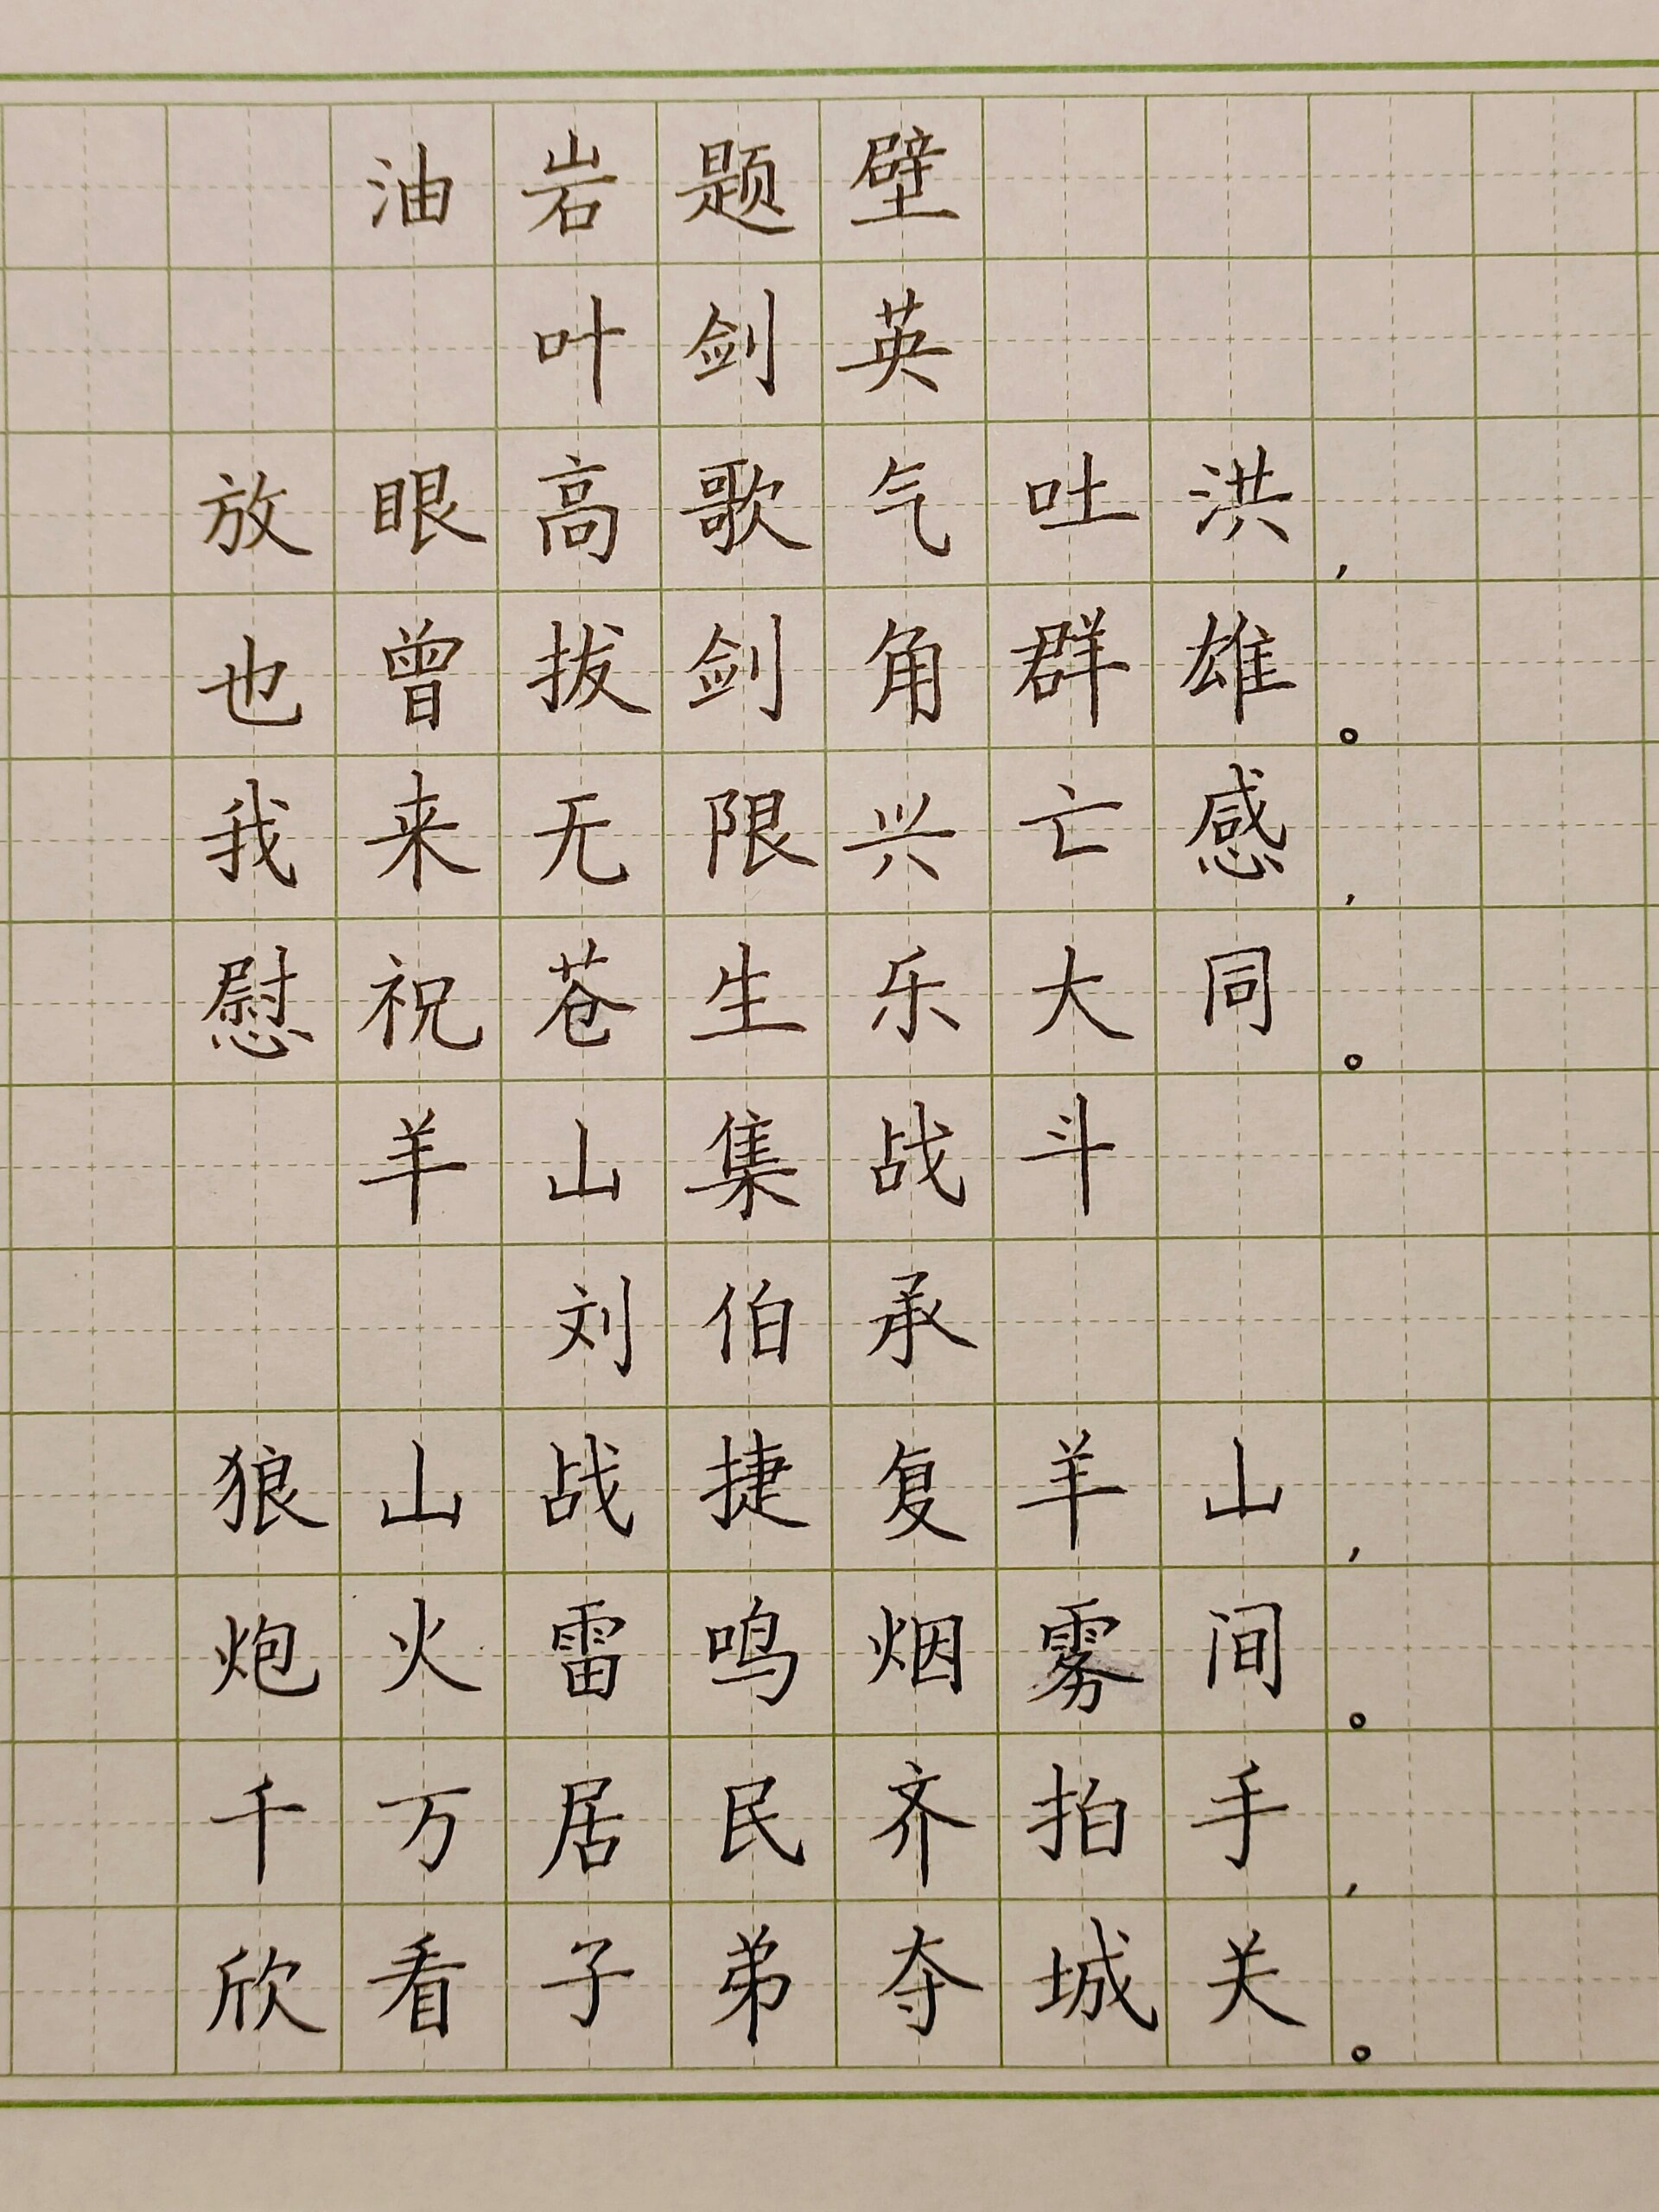 油岩题壁
叶剑英
放眼高歌气吐洪，
也曾拔剑角群雄。
我来无限兴亡感，
慰祝苍生乐大同。
羊山集战斗
刘伯承
狼山战捷复羊山，
炮火雷鸣烟雾间。
千万居民齐拍手，
欣看子弟夺城关。